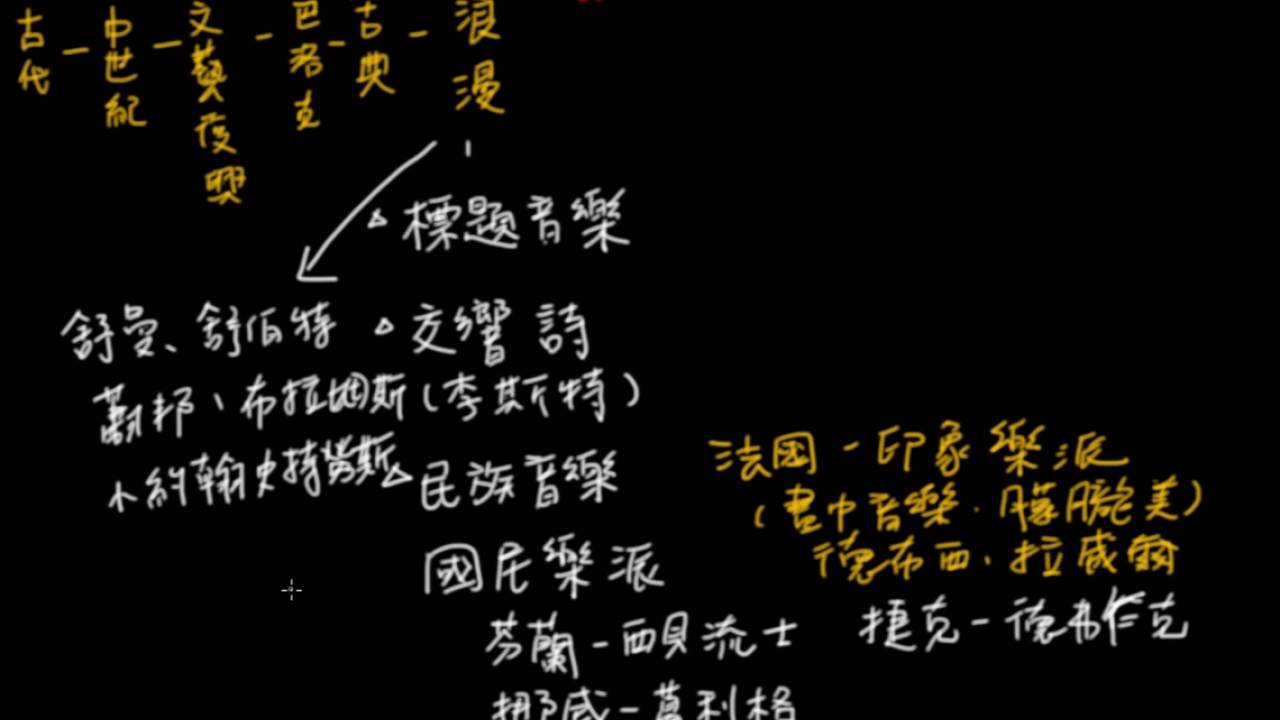 古代－中世紀－文藝復興－巴洛克－古典－浪漫
△標題音樂
舒曼、舒伯特
△交響詩
蕭邦、布拉姆斯
(李斯特)
小約翰史特勞斯
△民族音樂
國民樂派
芬蘭－西貝流士
挪威－葛利格
法國－印象樂派
(畫中音樂.朦朧美)
德布西、拉威爾
捷克－德弗乍克